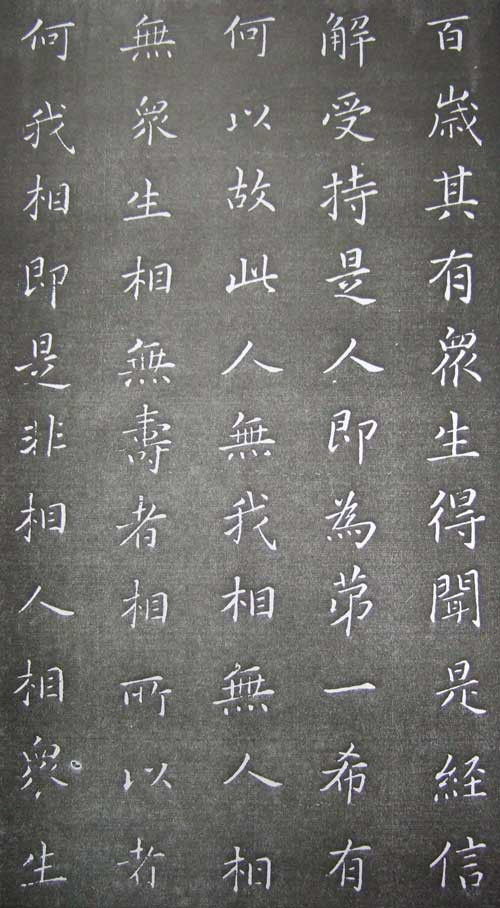 百歳其有眾生得聞是経信
解受持是人即為苐一希有
何以故此人無我相無人相
無眾生相無壽者相所以者
何我相即是非相人相眾生